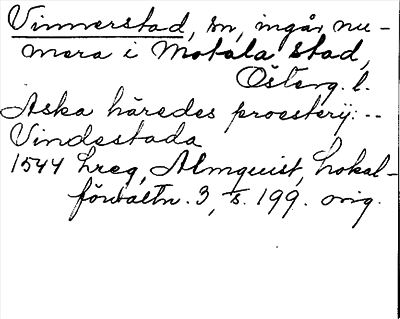 Vinnerstad, sn, ingår nu-
mera i Motala stad,
Österg. l.
Aska häredes proesterij: --
Vindestada
1544 hreg, Almquist, Lokal-
förvaltn. 3, s. 199. orig.